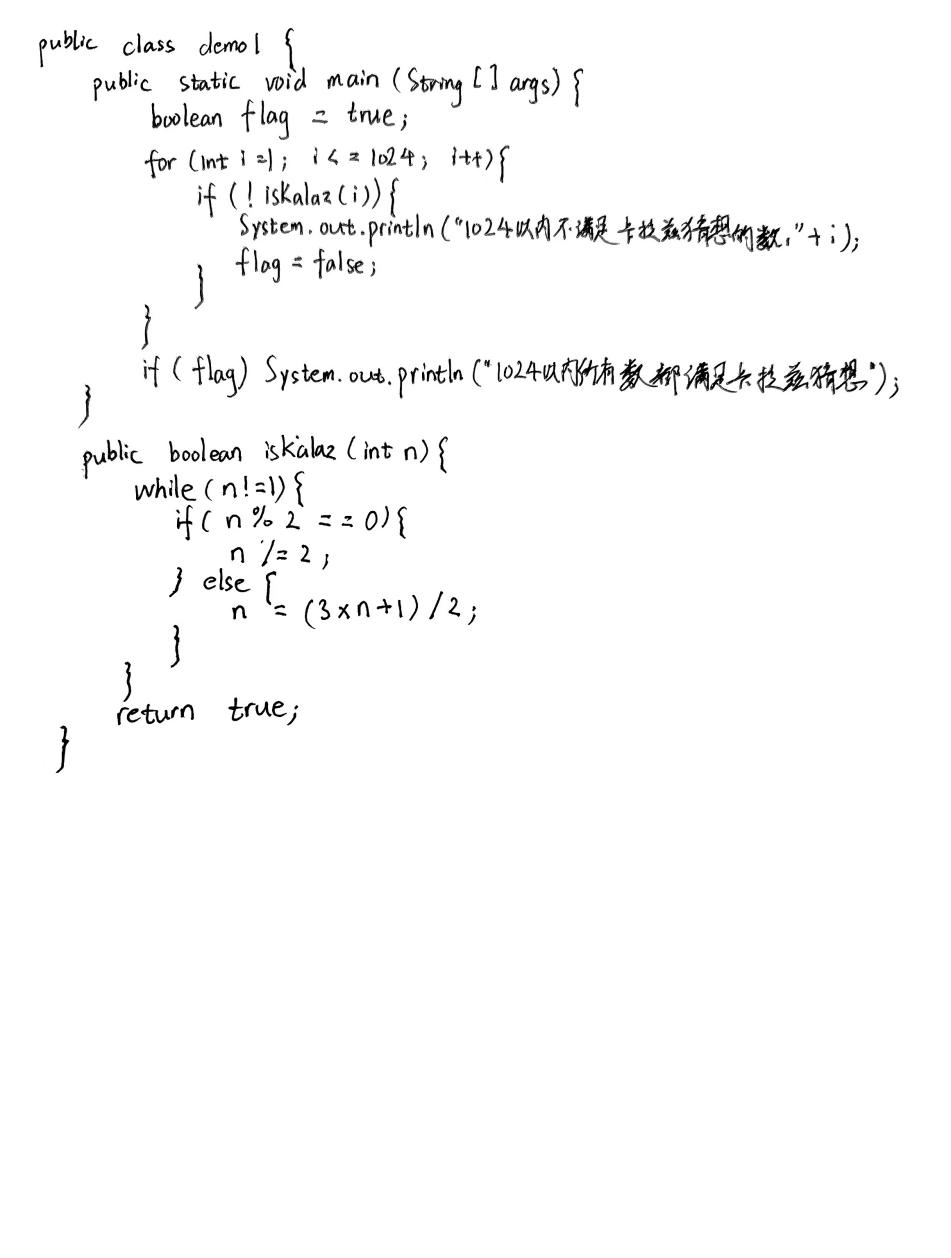 public class demo1 {
public static void main (String [] args) {
boolean flag = true;
for (int i =1; i < = 1024; i++){
if (! iskalaz (i)) {
System.out.println ("1024以内不满足卡拉兹猜想的数:" + i);
flag = false;
}
}
if ( flag) System.out.println ("1024以内所有数都满足卡拉兹猜想");
}
public boolean iskalaz (int n) {
while ( n!=1) {
if ( n % 2 == 0) {
n /= 2 ;
} else {
n = (3 × n+1) / 2;
}
}
return true;
}